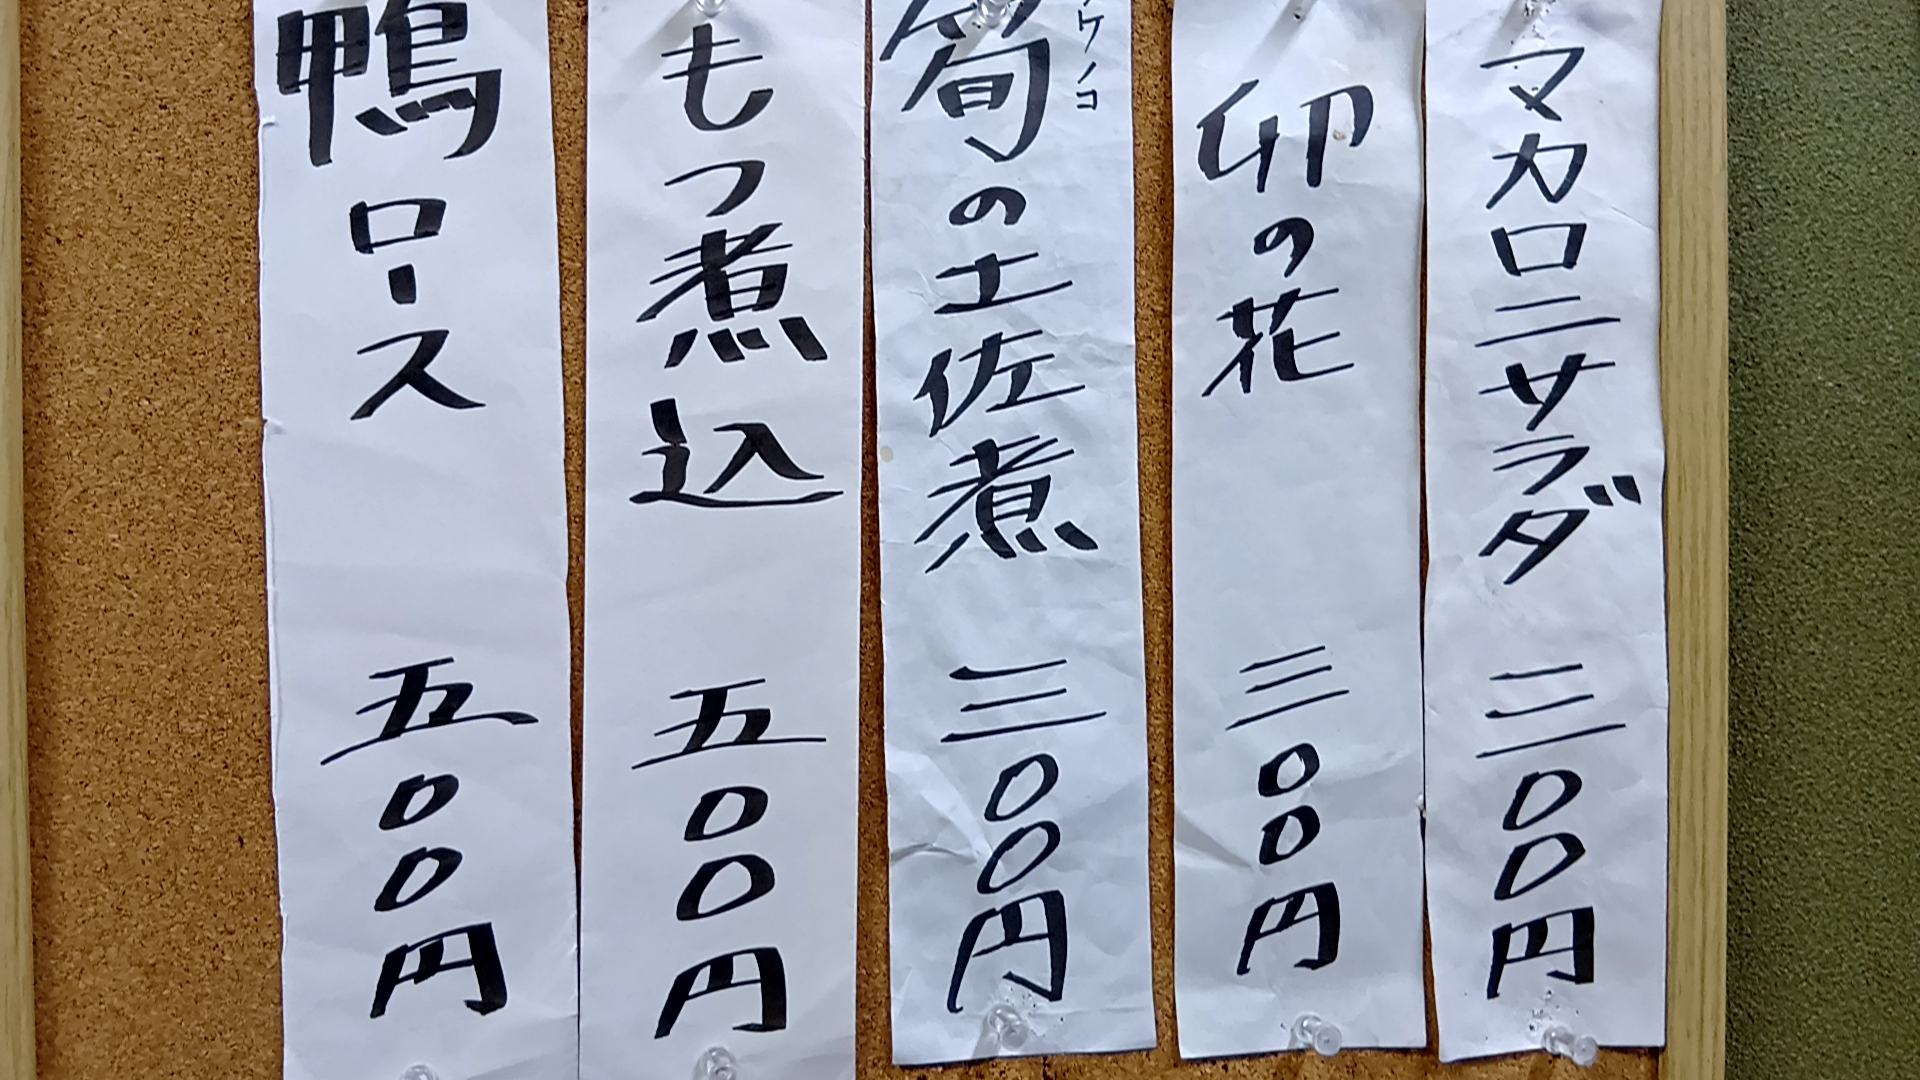 マカロニサラダ 三〇〇円
卯の花 三〇〇円
筍の土佐煮 三〇〇円
ケノコ
もつ煮込 五〇〇円
鴨ロース 五〇〇円